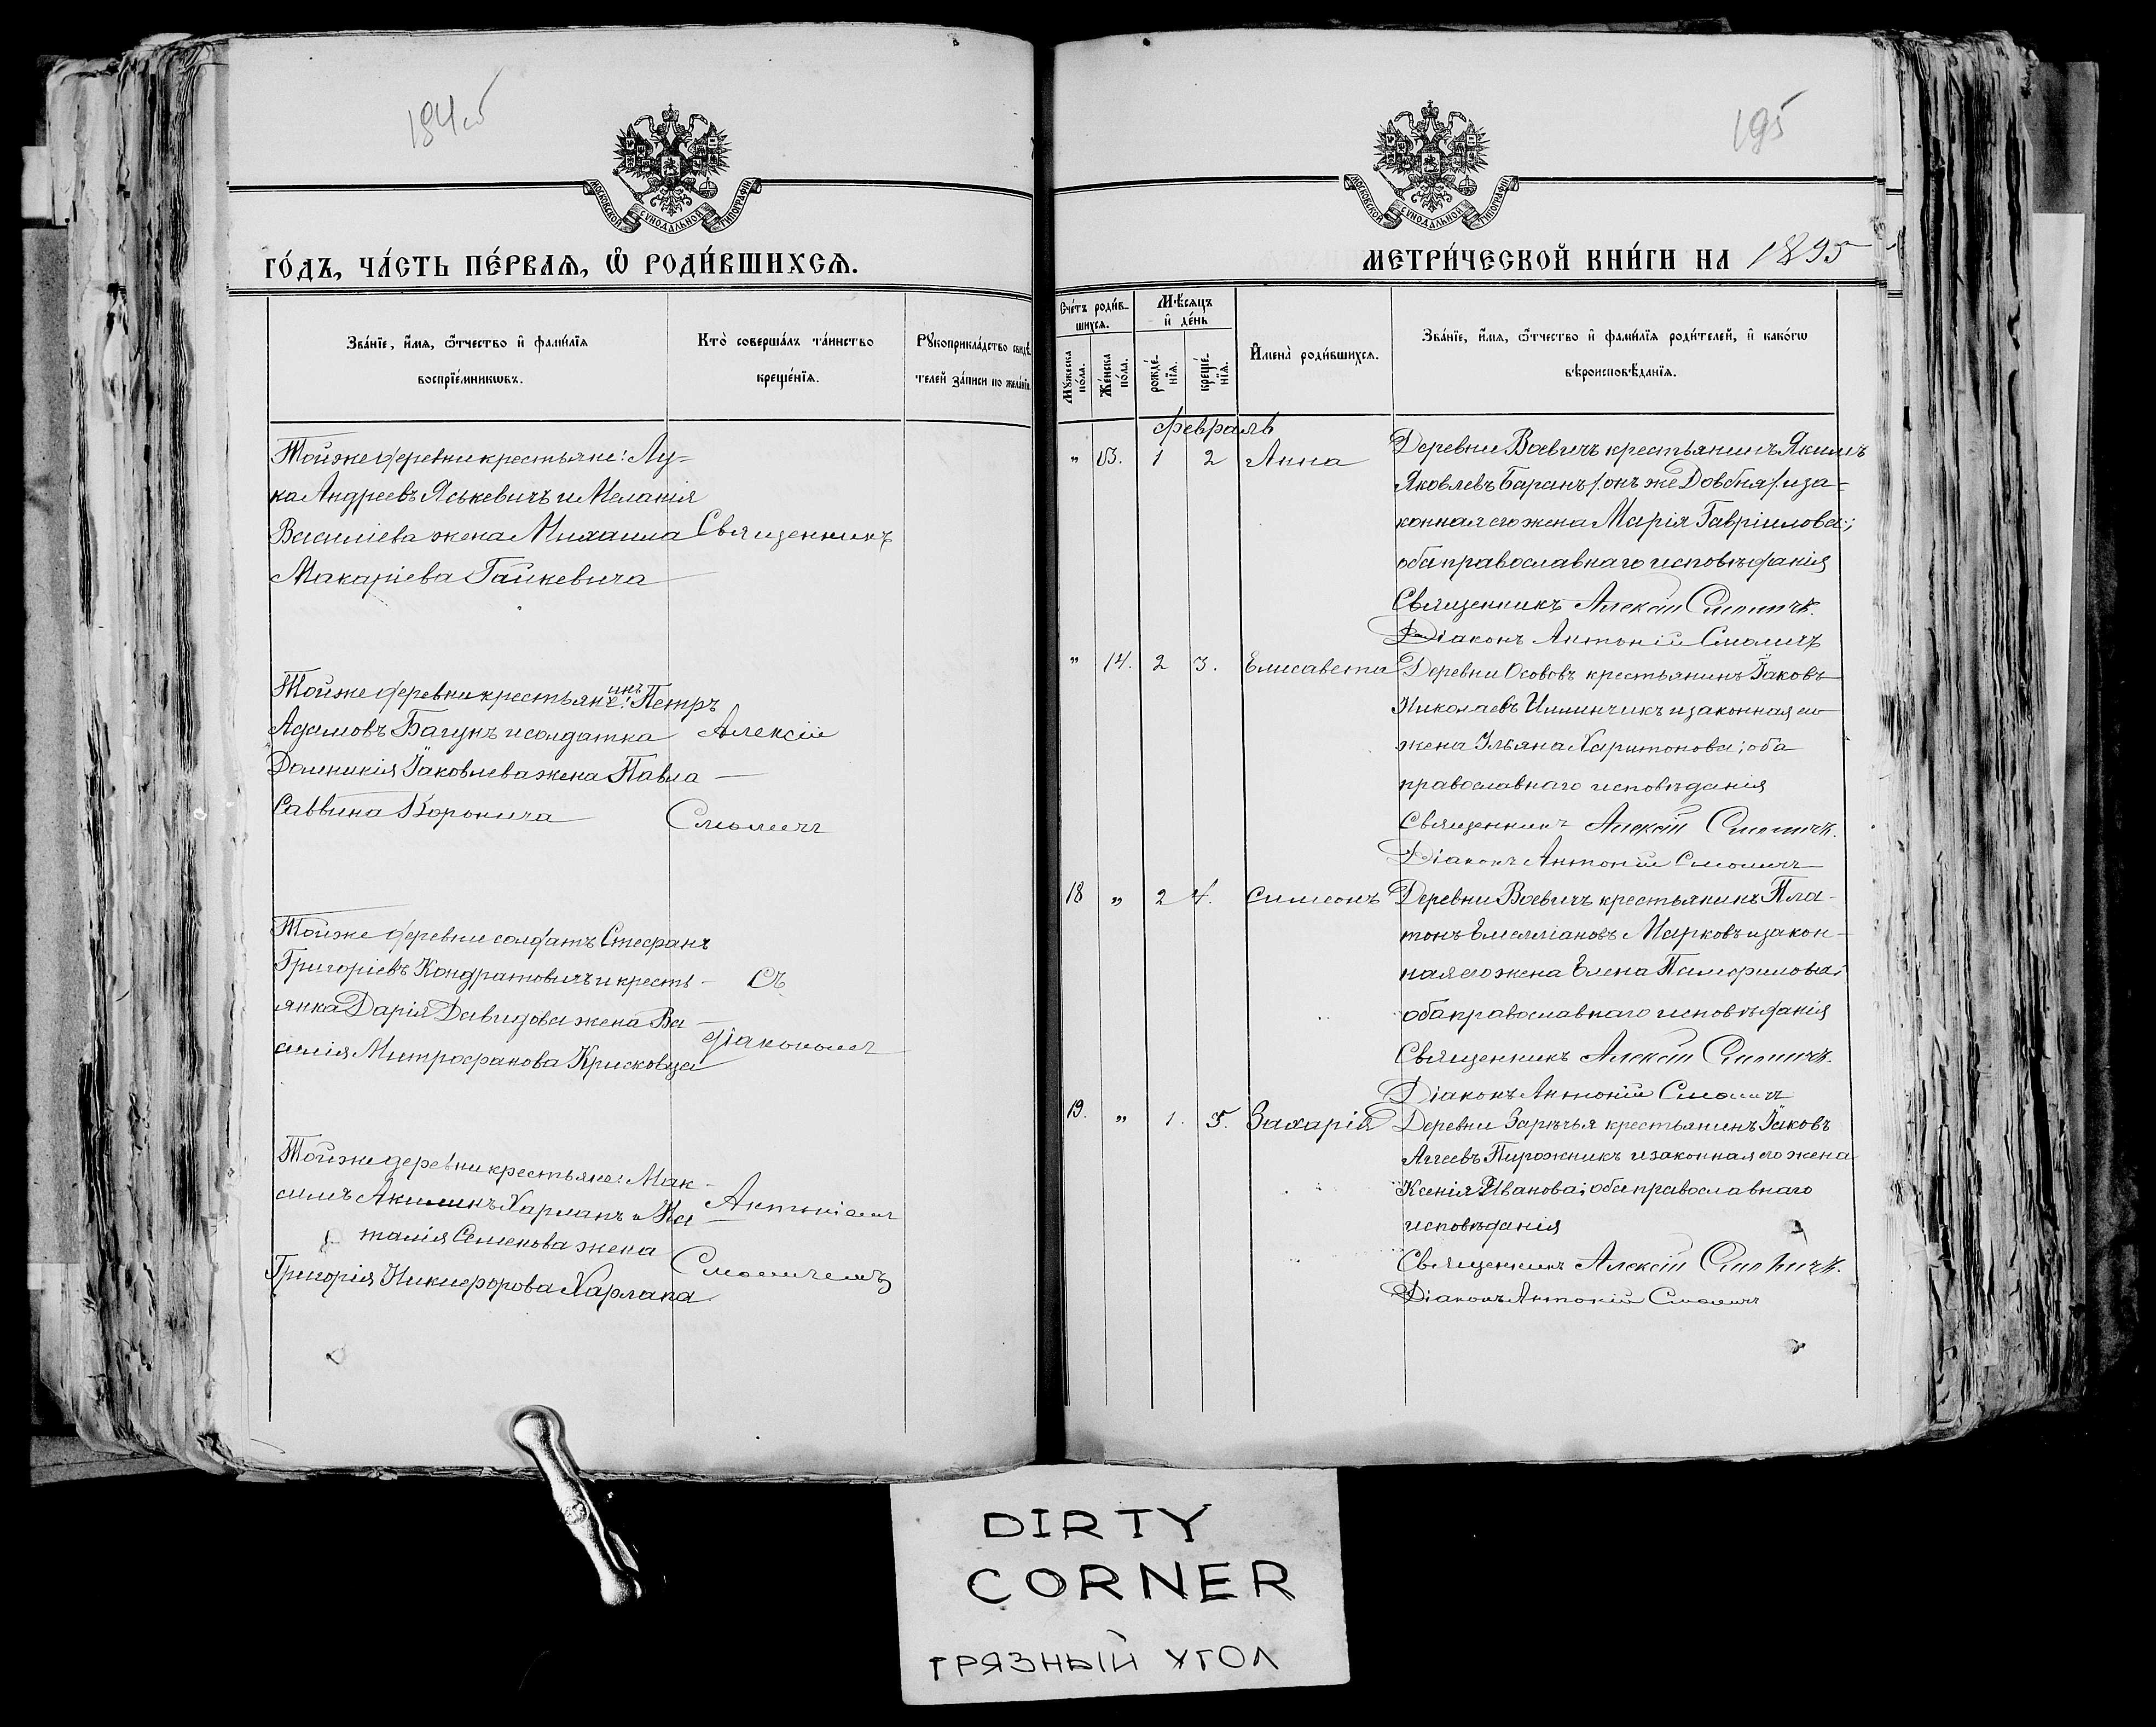 194 об
МОСКОВСКОЙ СѴНОДАЛЬНОЙ ТИПОГРАФІИ
ГО́ДЪ, ЧА́СТЬ ПЕ́РВАѦ, Ѡ҆ РОДИ́ВШИХСѦ.
Зва́нїе, и҆́мѧ, ѻ҆́тчество и҆ фами́лїѧ
воспрїе́мникѡвъ.
Кто̀ соверша́лъ та́инство
креще́нїѧ.
Рꙋкоприкла́дство свидѣ́
телей за́писи по жела́нїю
Тойже деревни крестьяне: Лу=
ка Андреевъ Яськевичъ и Меланія
Василіева жена Михаила
Макаріева Гайкевича
Священникъ
Тойже деревни крестьянинъ: Петръ
Адамовъ Багунъ и солдатка
Домникія Іаковлева жена Павла
Саввина Воронича
Алексій
Смоличъ
Тойже деревни солдатъ Стефанъ
Григоріевъ Кондратовичъ и кресть-
янка Дарія Давидова жена Ва-
силія Митрофанова Крисковца
Съ
діакономъ
Тойже деревни крестьяне: Мак-
симъ Акиминъ Харланъ и На-
талія Семенова жена
Григорія Никифорова Харлапа
Антоніемъ
Смоличемъ
195
МОСКОВСКОЙ СѴНОДАЛЬНОЙ ТИПОГРАФІИ
МЕТРИ́ЧЕСКОЙ КНИ́ГИ НА 1895
Сче́тъ роди́в-
шихсѧ.
Мѣ́сѧцъ
и҆ де́нь
Мꙋ́жеска по́ла.
Же́нска по́ла.
рожде́-нїѧ.
креще́-нїѧ.
И҆мена̀ роди́вшихсѧ.
Зва́нїе, и҆́мѧ, ѻ҆́тчество и҆ фами́лїѧ роди́телей, и҆ како́гѡ
вѣроисповѣ́данїѧ.
февраль
" 13. 1 2 Анна
Деревни Воевичъ крестьянинъ Якимъ
Яковлевъ Баранъ /онъ же Довбня/ и за-
конная его жена Марія Гавріилова;
оба православнаго исповѣданія
Священникъ Алексій Смоличъ.
Діаконъ Антоній Смоличъ
" 14. 2 3. Елисавета
Деревни Осововъ крестьянинъ Іаковъ
Николаевъ Илминчикъ и законная его
жена Ульяна Харитонова; оба
православнаго исповѣданія
Священникъ Алексій Смоличъ.
Діаконъ Антоній Смоличъ
18 " 2 4. Симеонъ
Деревни Воевичъ крестьянинъ Пла-
тонъ Емеліановъ Марковъ и закон-
ная его жена Елена Памфилова;
оба православнаго исповѣданія
Священникъ Алексій Смоличъ.
Діаконъ Антоній Смоличъ
19. " 1. 5. Захарія
Деревни Зарѣчья крестьянинъ Іаковъ
Аггеевъ Пирожникъ и законная его жена
Ксенія Иванова; оба православнаго
исповѣданія
Священникъ Алексій Смоличъ.
Діаконъ Антоній Смоличъ
DIRTY
CORNER
ГРЯЗНЫЙ УГОЛ